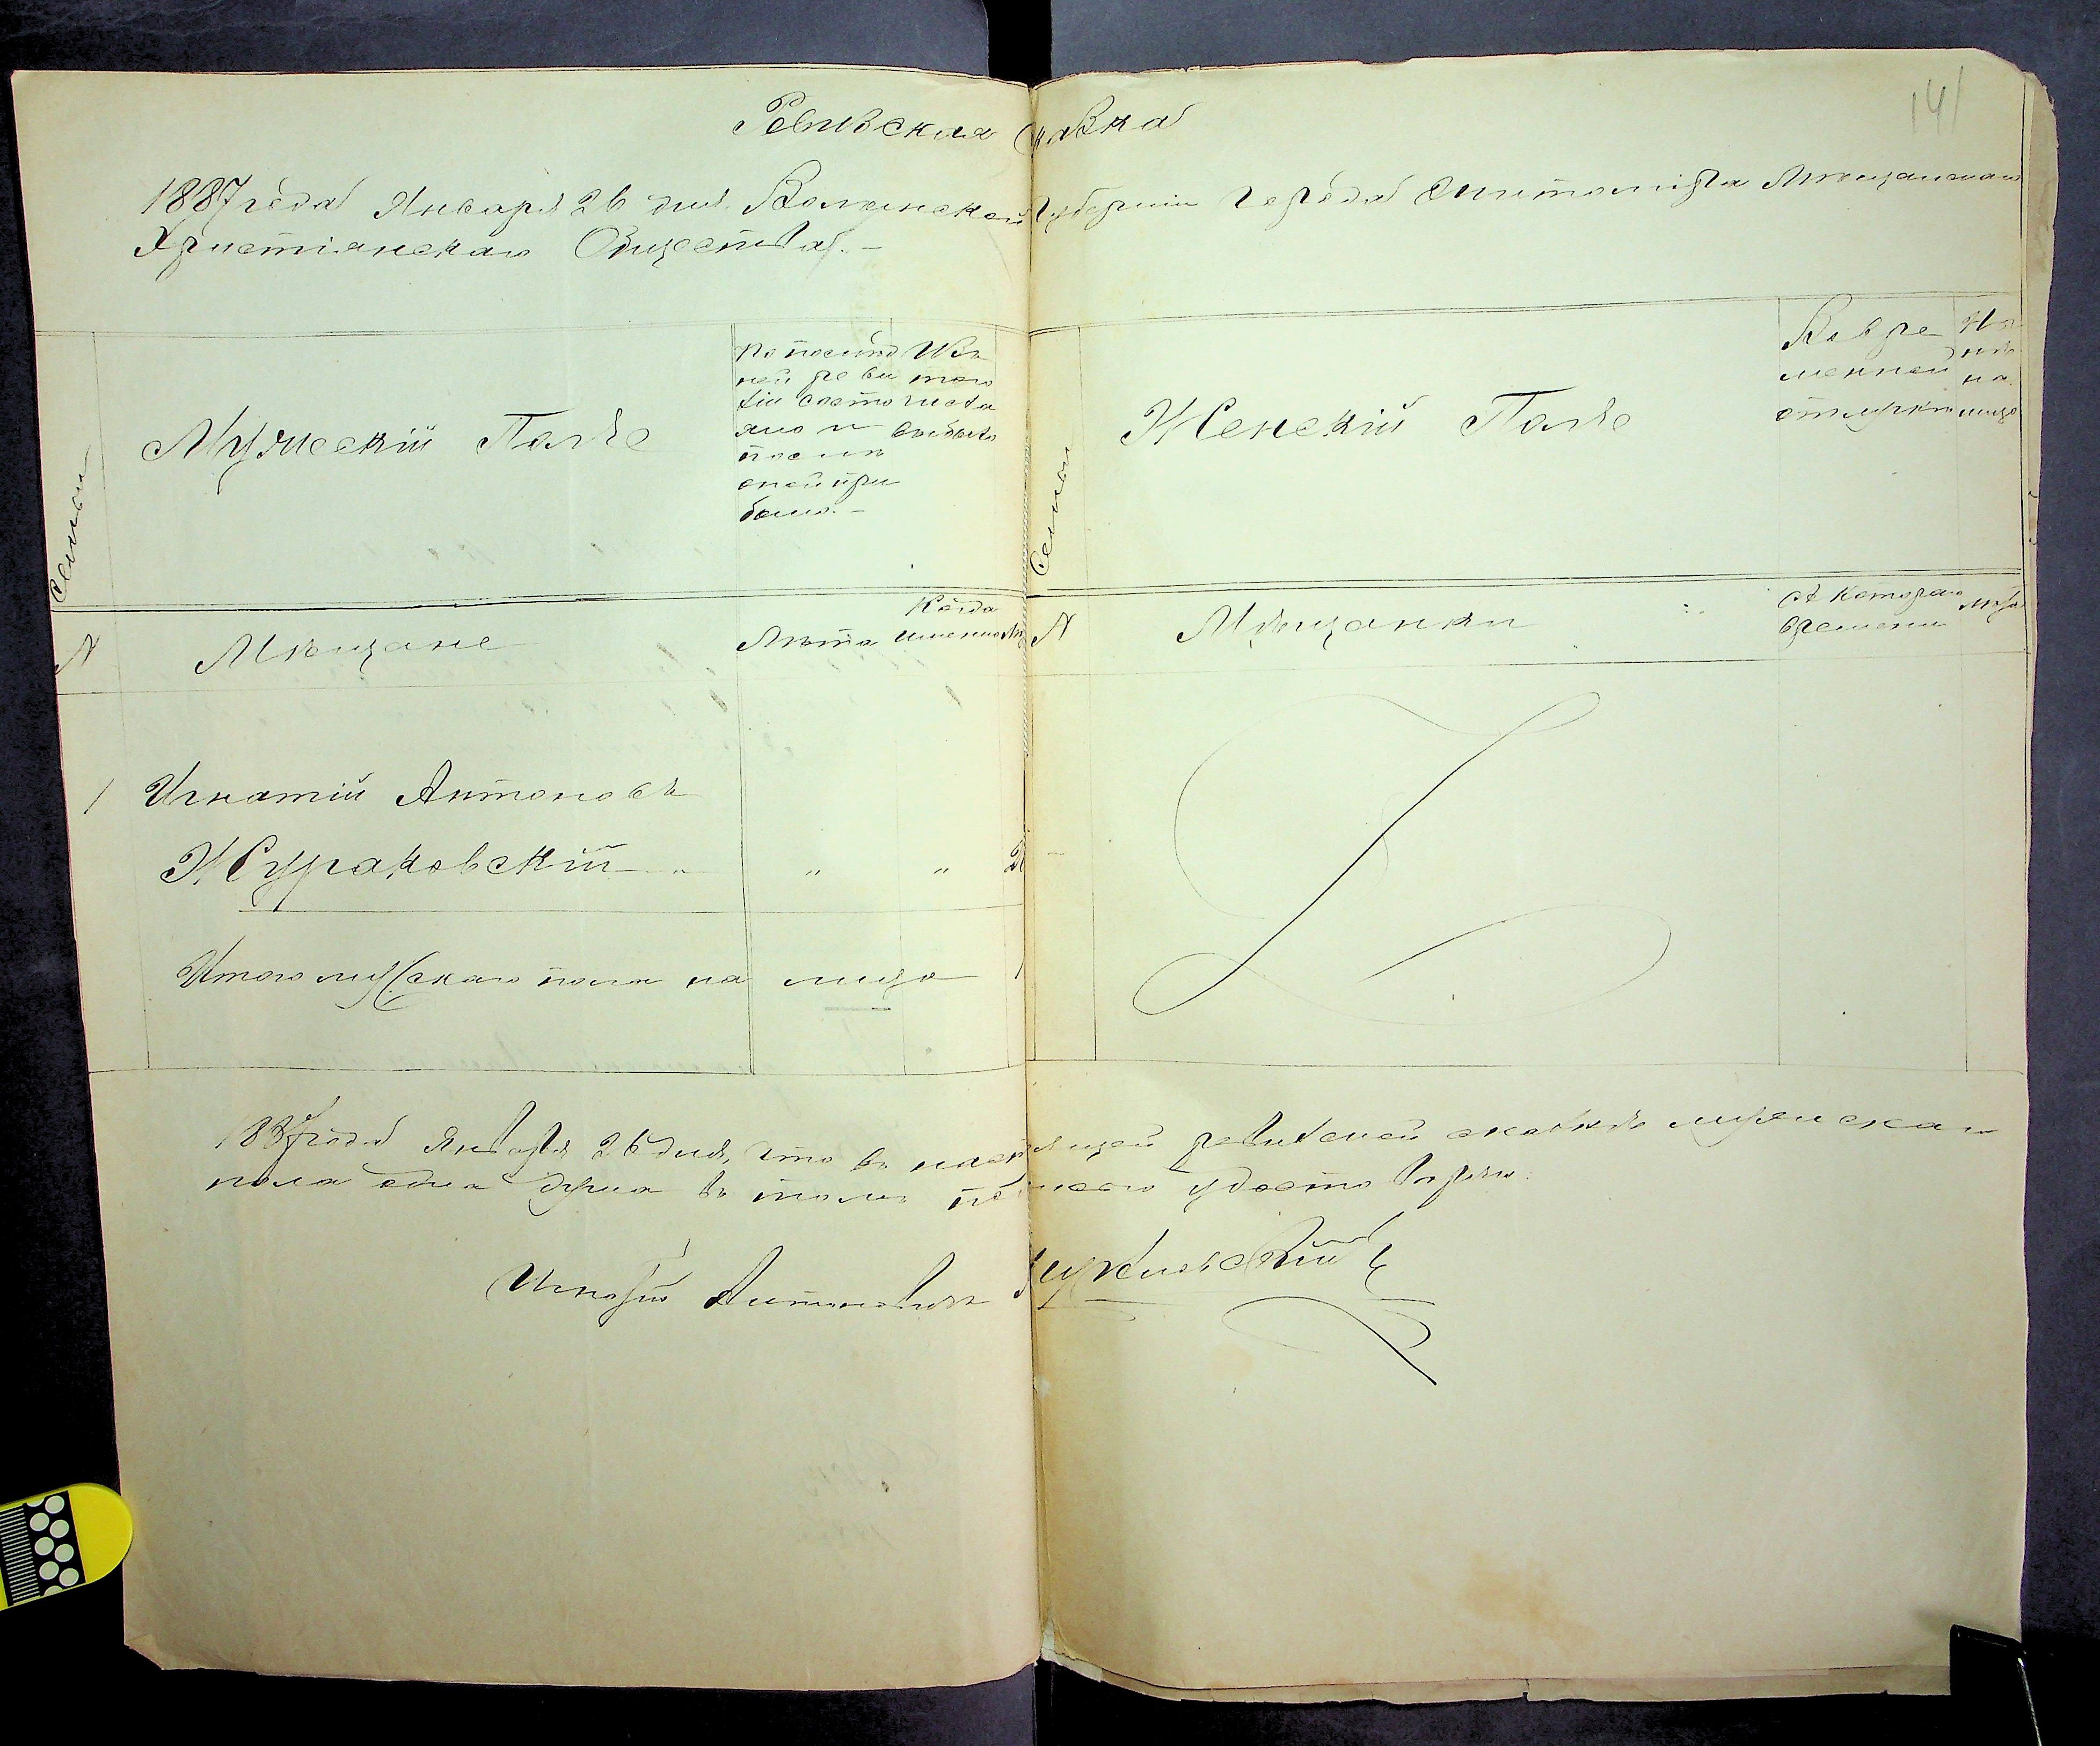 141
Ревизская сказка
1887 года Января 26 дня. Волынской Губерніи города Житоміра Мѣщанскаго
Христіанскаго Общества. —
Семьи
Мужескій Полъ
По послѣд
ней реви
зіи состо
яло и
послѣ
оной при
было. —
Изъ
того
числа
выбыло
Семьи
Женскій Полъ
Во вре
менной
отлучкѣ
Нынѣ
на
лицо
№
Мѣщане
Лѣта
Когда
именно
№
Мѣщанки
Съ котораго
времени
Лѣта
1 Игнатій Антоновъ
Жураковскій — „ „ „ 2
Итого мужескаго пола на лицо 1
1887 года Января 26 дня, что въ настоящей ревизской сказкѣ мужскаго
пола одна душа въ томъ удостовѣряю.
Игнатій Антоновъ Жураковскій